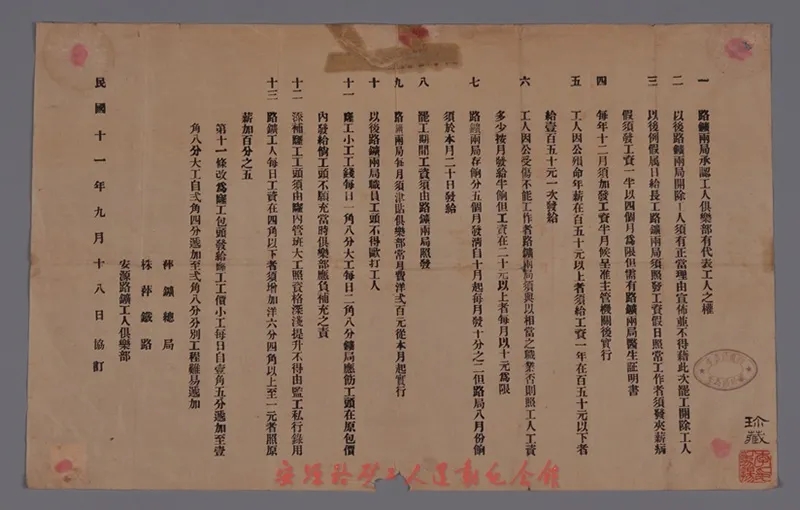 一 路鑛兩局承認工人俱樂部有代表工人之權
二 以後路鑛兩局開除工人須有正當理由宣佈並不得藉此次罷工開除工人
三 以後例假屬日給長工路鑛兩局須照發工資假日照當工作者須發夾薪病
假須發工資一半以四個月爲限但需有路鑛兩局醫生証明書
四 每年十二月須加發工資半月候呈准主管機關後實行
五 工人因公殞命年薪在百五十元以上者須給工資一年在百五十元以下者
給壹百五十元一次發給
六 工人因公受傷不能工作者路鑛兩局須與以相當之職業否則照工人工資
多少按月發給半餉但工資在二十元以上者每月以十元爲限
七 路鑛兩局存餉分五個月發清自十月起每月發十分之二但路局八月份餉
須於本月二十日發給
八 罷工期間工資須由路鑛兩局照發
九 路鑛兩局每月須津貼俱樂部常月費洋弍百元從本月起實行
十 以後路鑛兩局職員工頭不得毆打工人
十一 窿工小工工錢每日一角八分大工每日二角八分鑛局應飭工頭在原包價
內發給倘工頭不願充當時俱樂部應負補充之責
十二 添補窿工工頭須由窿內管班大工照資格深淺提升不得由監工私行錄用
十三 路鑛工人每日工資在四角以下者須增加洋六分四角以上至一元者照原
薪加百分之五
第十一條改爲窿工包頭發給窿工工價小工每日自壹角五分遞加至壹
角八分大工自弍角四分遞加至弍角八分分別工程難易遞加
萍鑛總局
株萍鐵路
安源路鑛工人俱樂部
民國十一年九月十八日協訂
珍藏
安源路矿工人运動纪念館